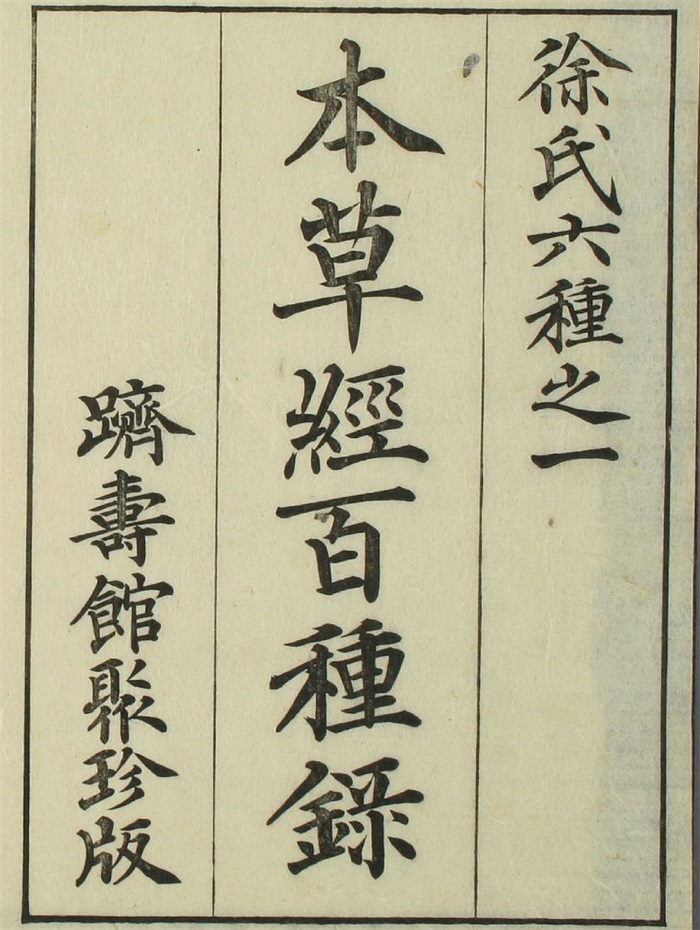 徐氏六種之一
本草經百種錄
躋壽館聚珍版